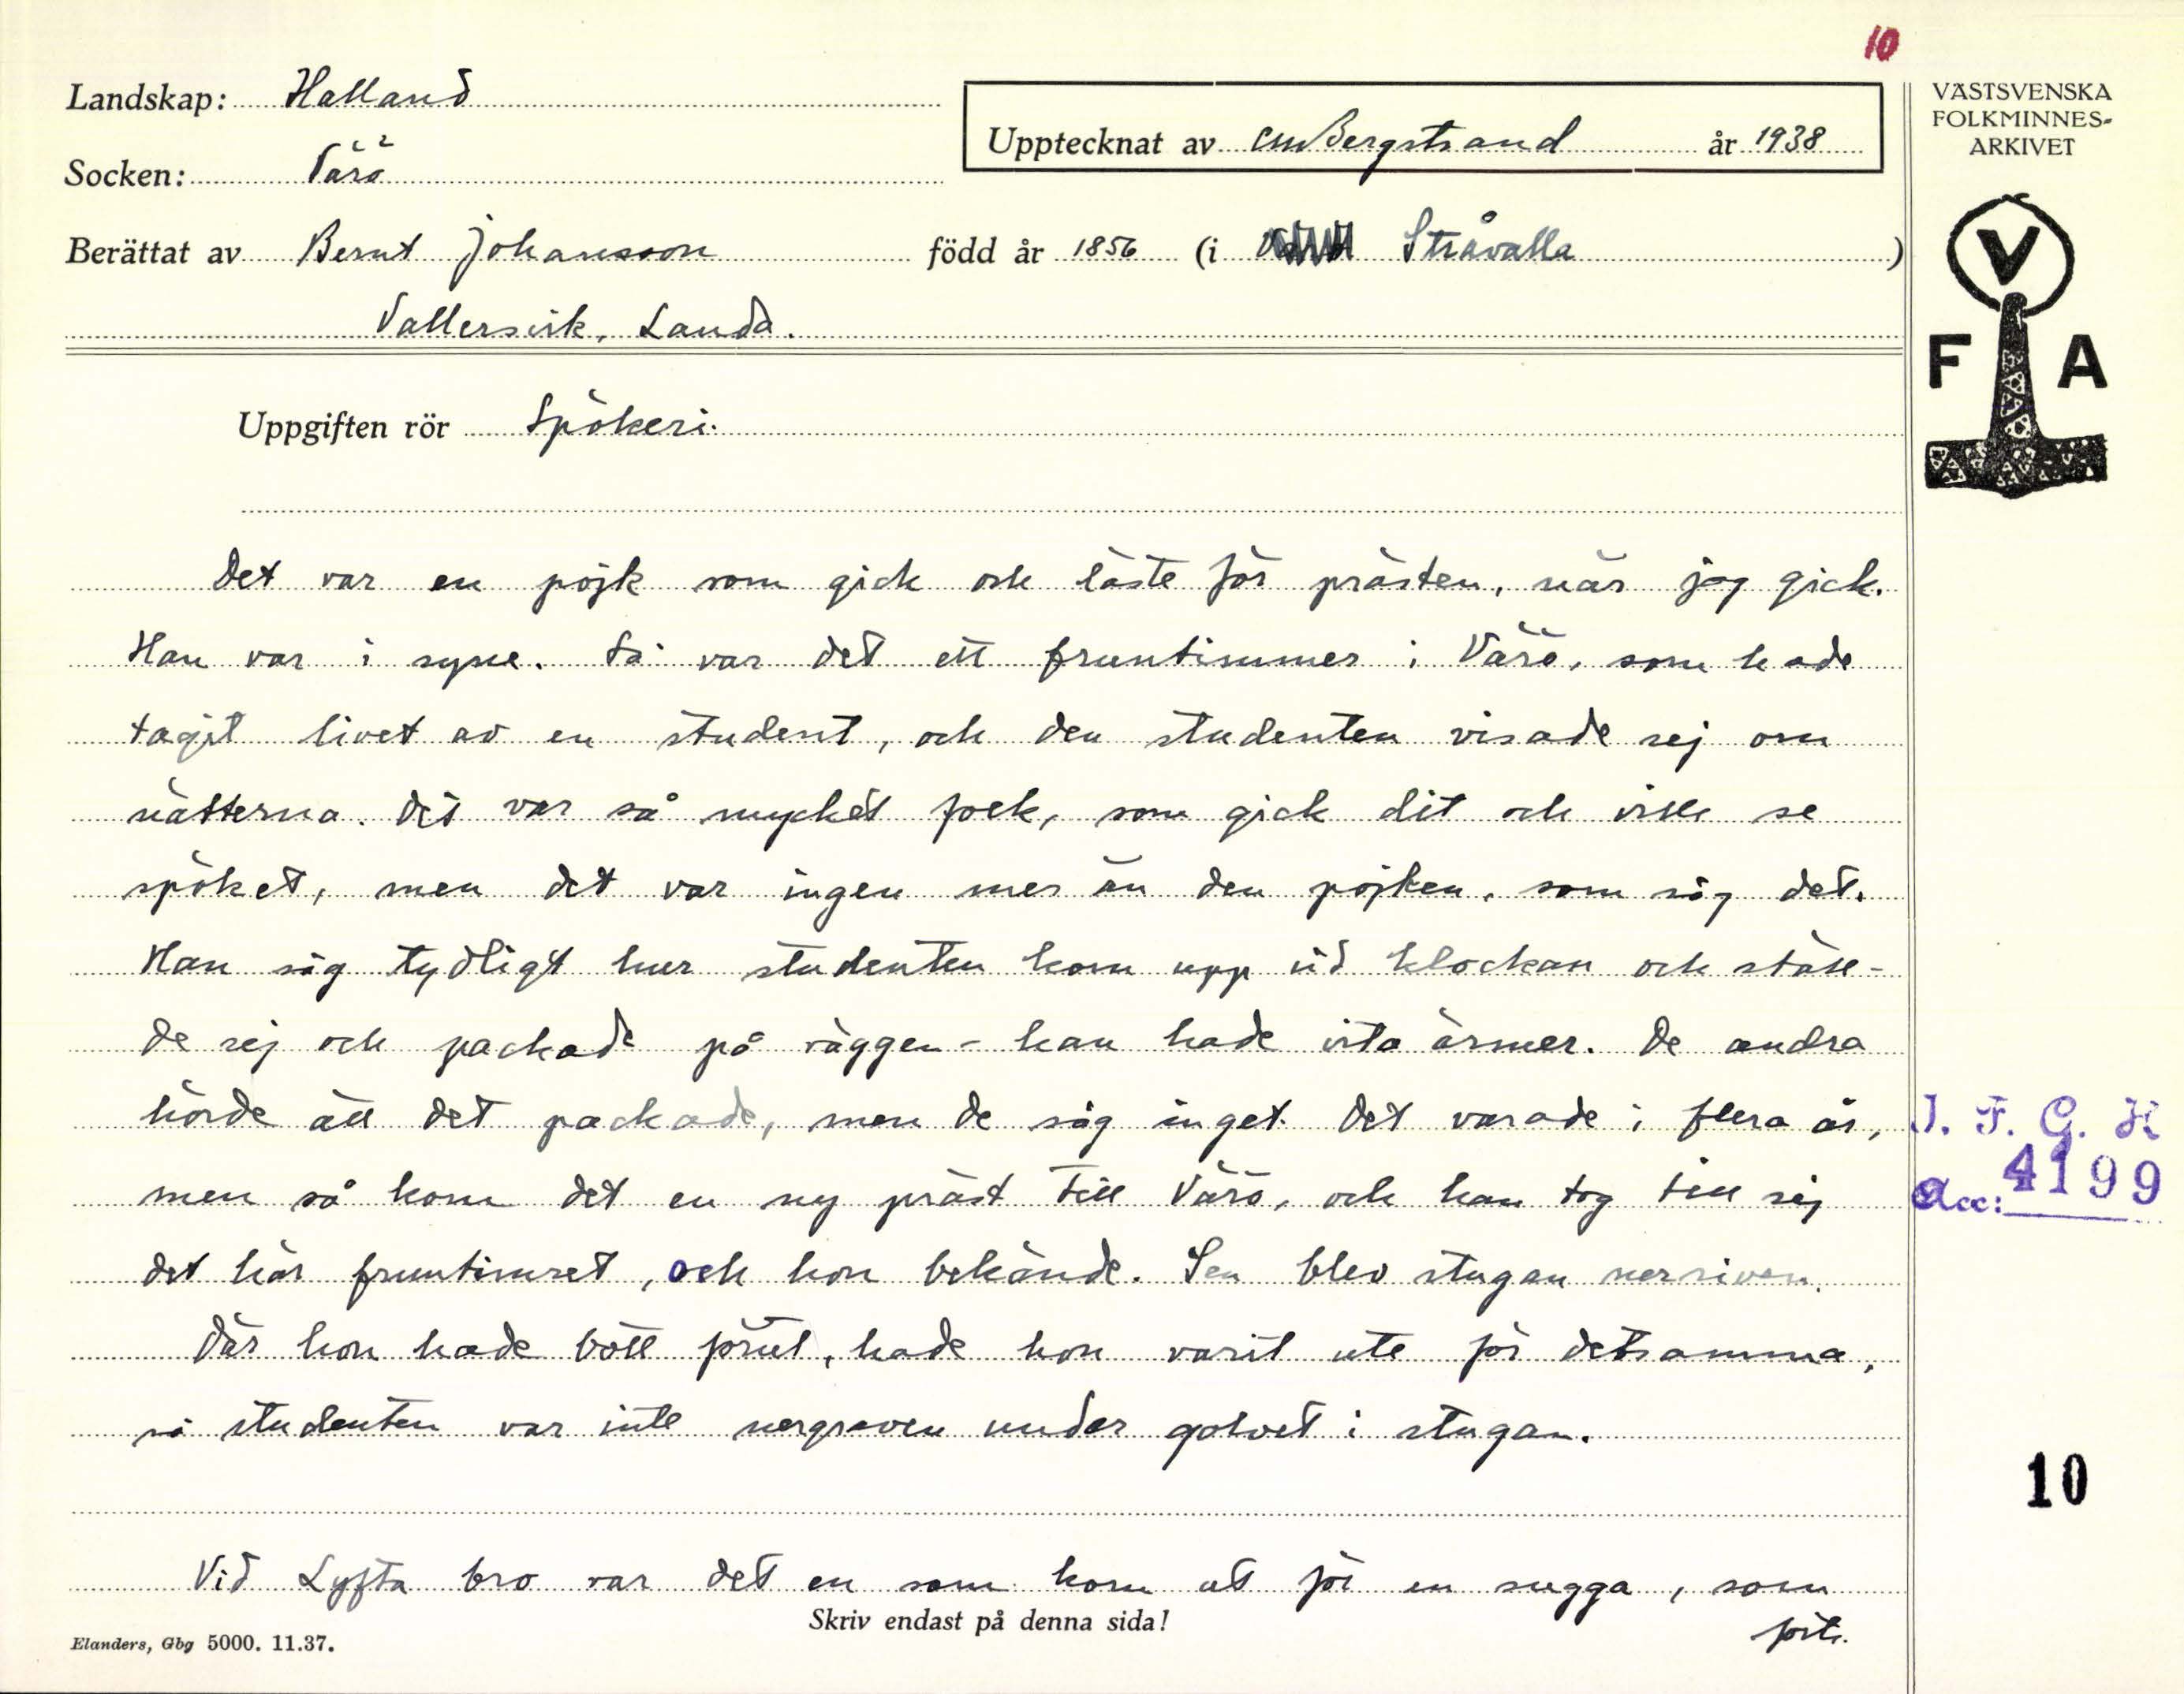 10
Landskap: Halland
Upptecknat av CMBergstrand år 1938
VÄSTSVENSKA
FOLKMINNES-
ARKIVET
Socken: Värö
Berättat av Bernt Johansson född år 1856 (i Stråvalla)
Vallersvik, Landa.
V
F A
Uppgiften rör Spökeri.
Det var en pojk som gick och läste för prästen, när jag gick.
Han var i syne. Så var det ett fruntimmer i Värö, som hade
tagit livet av en student, och den studenten visade sej om
nätterna. Det var så mycket folk, som gick dit och ville se
spöket, men det var ingen mer än den pojken, som såg det.
Han såg tydligt hur studenten kom upp vid klockan och ställ-
de sej och packade på väggen - han hade vita ärmer. De andra
hörde att det packade, men de såg inget. Det varade i flera år,
men så kom det en ny präst till Värö, och han tog till sej
det här fruntimret, och hon bekände. Sen blev stugan nerriven.
Där hon hade bott förut, hade hon varit ute för detsamma,
så studenten var inte nergraven under golvet i stugan.
I. F. G. H
Acc: 4199
10
Vid Lyfta bro var det en som kom ut för en sugga, som
forts.
Skriv endast på denna sida!
Elanders, Gbg 5000. 11.37.